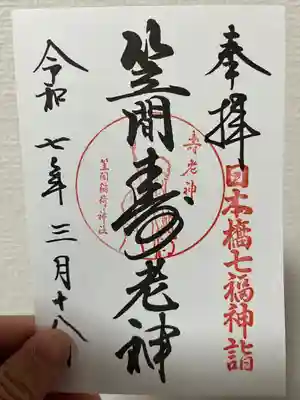 奉拝
日本橋七福神詣
笠間寿老神
寿老神
笠間稲荷神社
令和七年三月十八